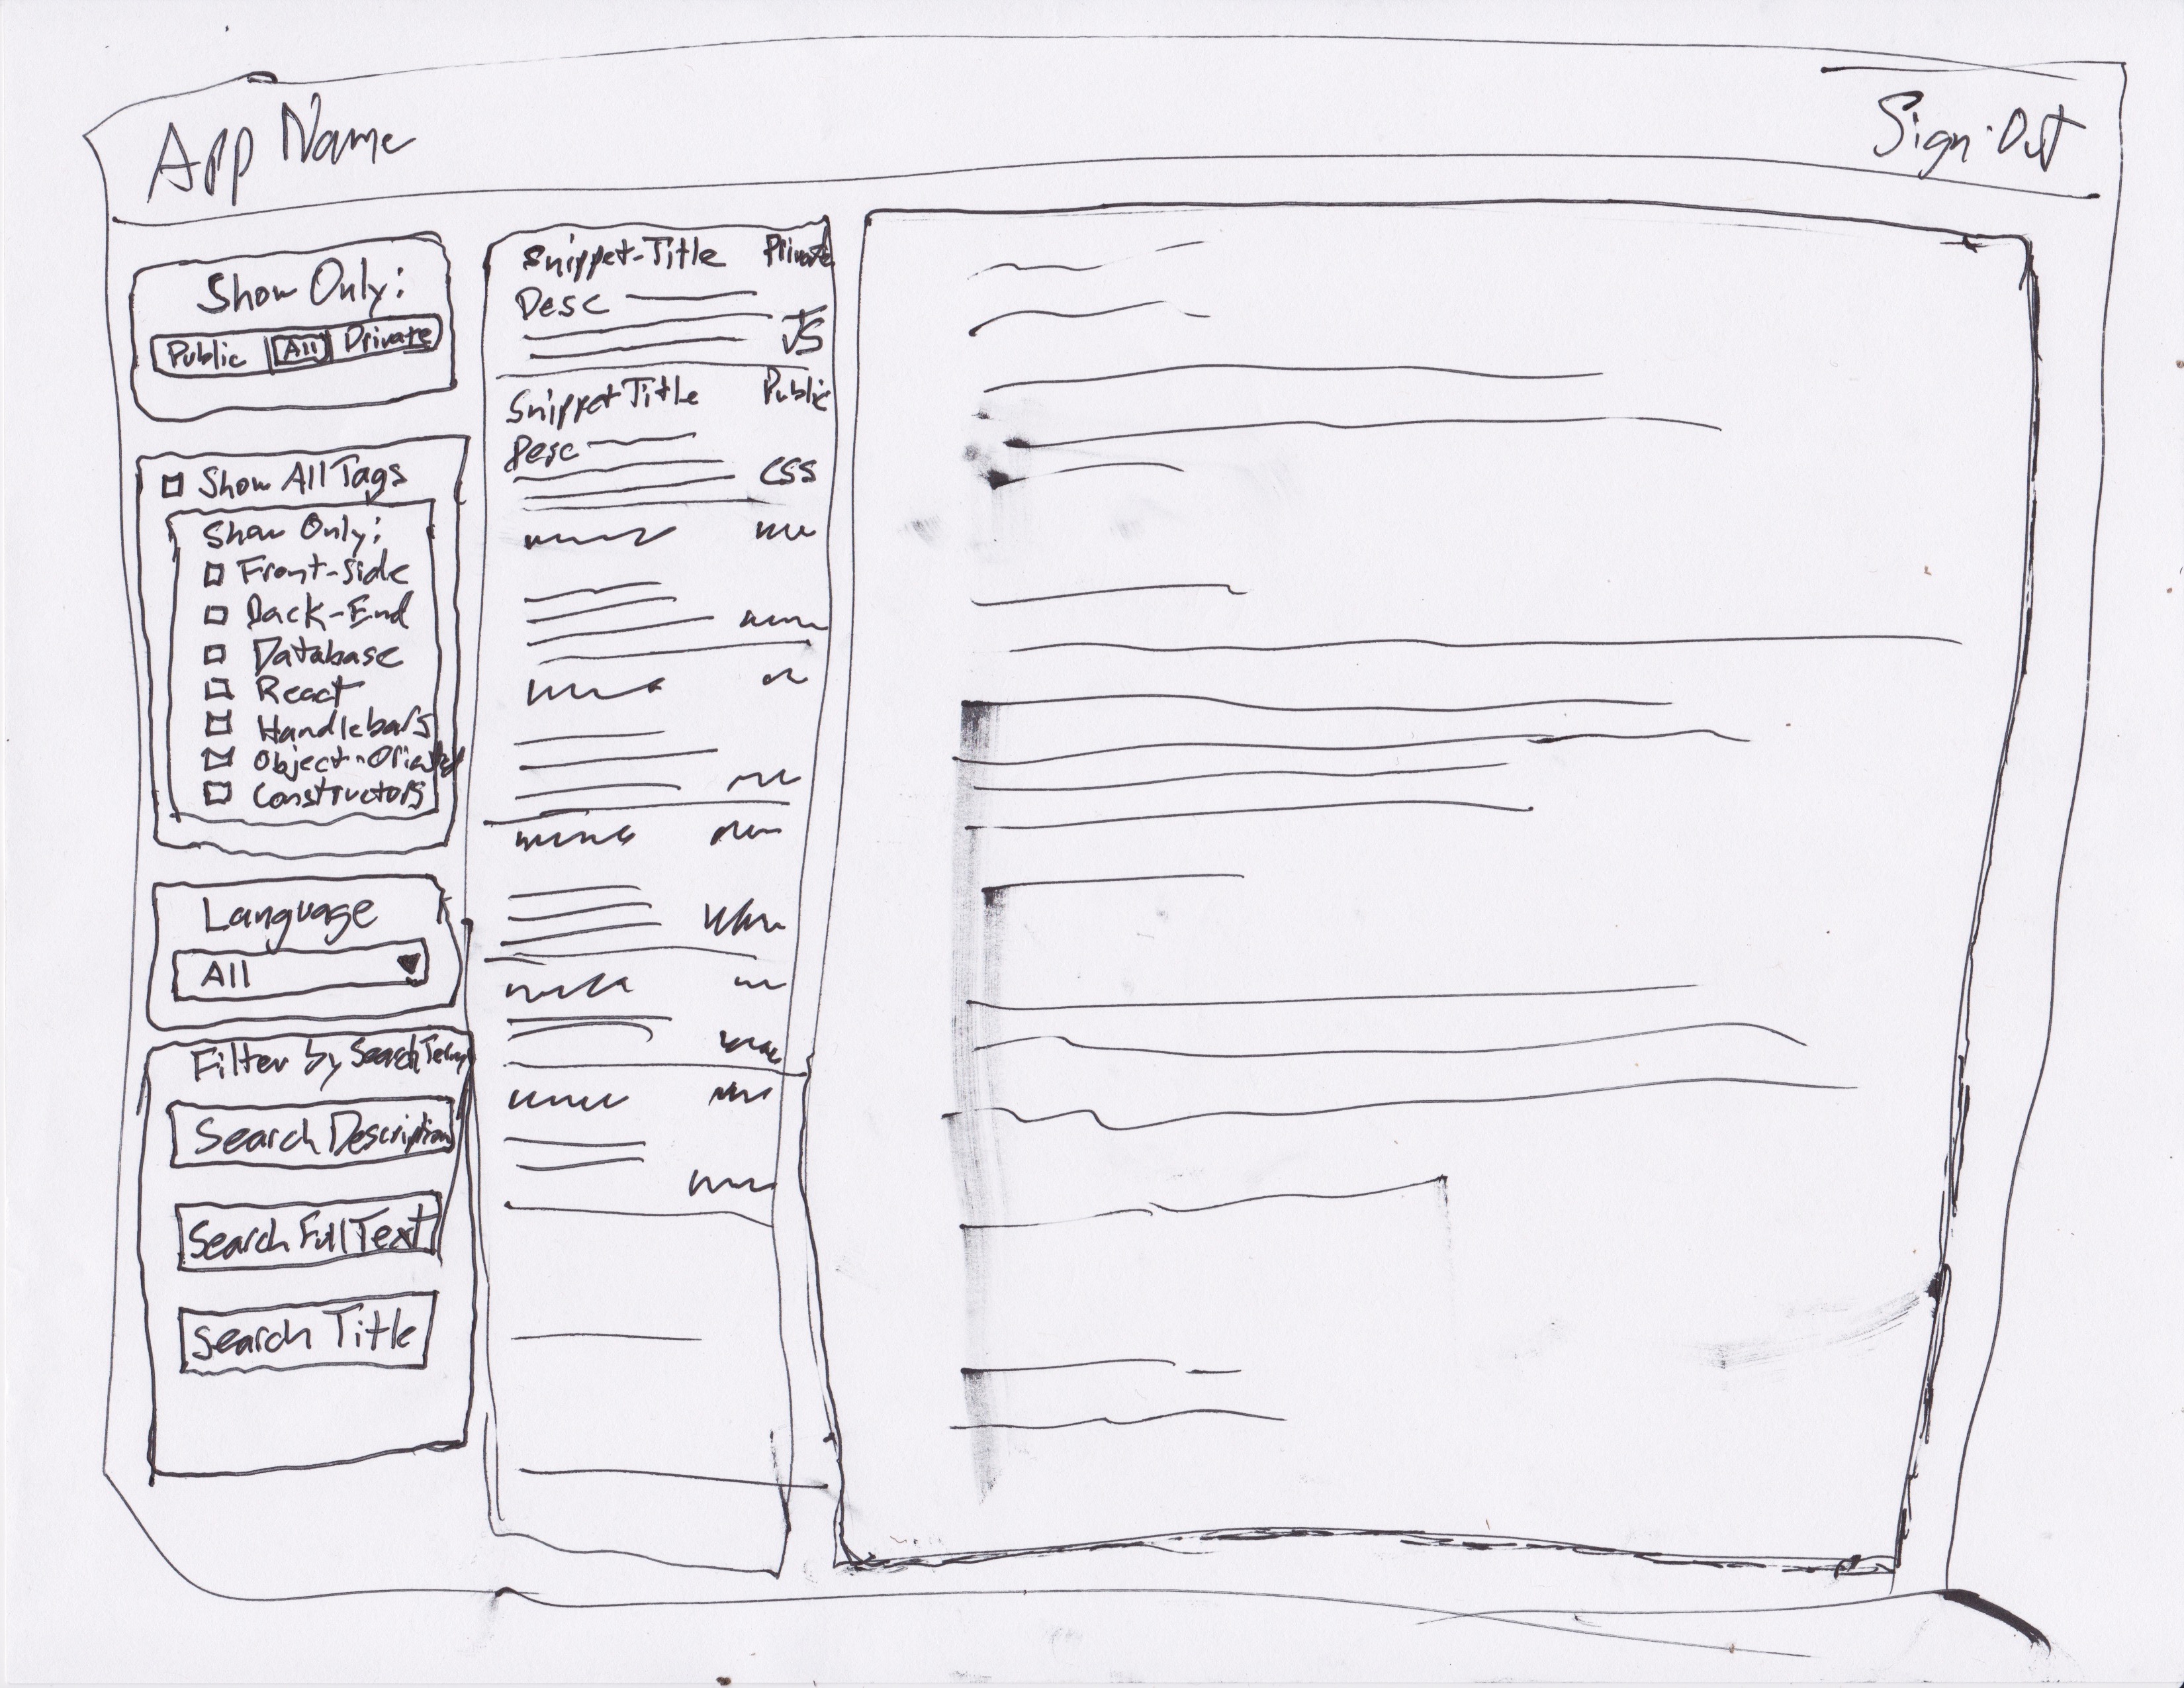 App Name
Sign-Out
Show Only:
Public All Private
Show All Tags
Show Only:
Front-Side
Back-End
Database
React
Handlebars
Object-Oriented
Constructors
Language
All
Filter by Search Term
Search Description
Search Full Text
Search Title
Snippet-Title Private
Desc
JS
Snippet Title Public
Desc
CSS